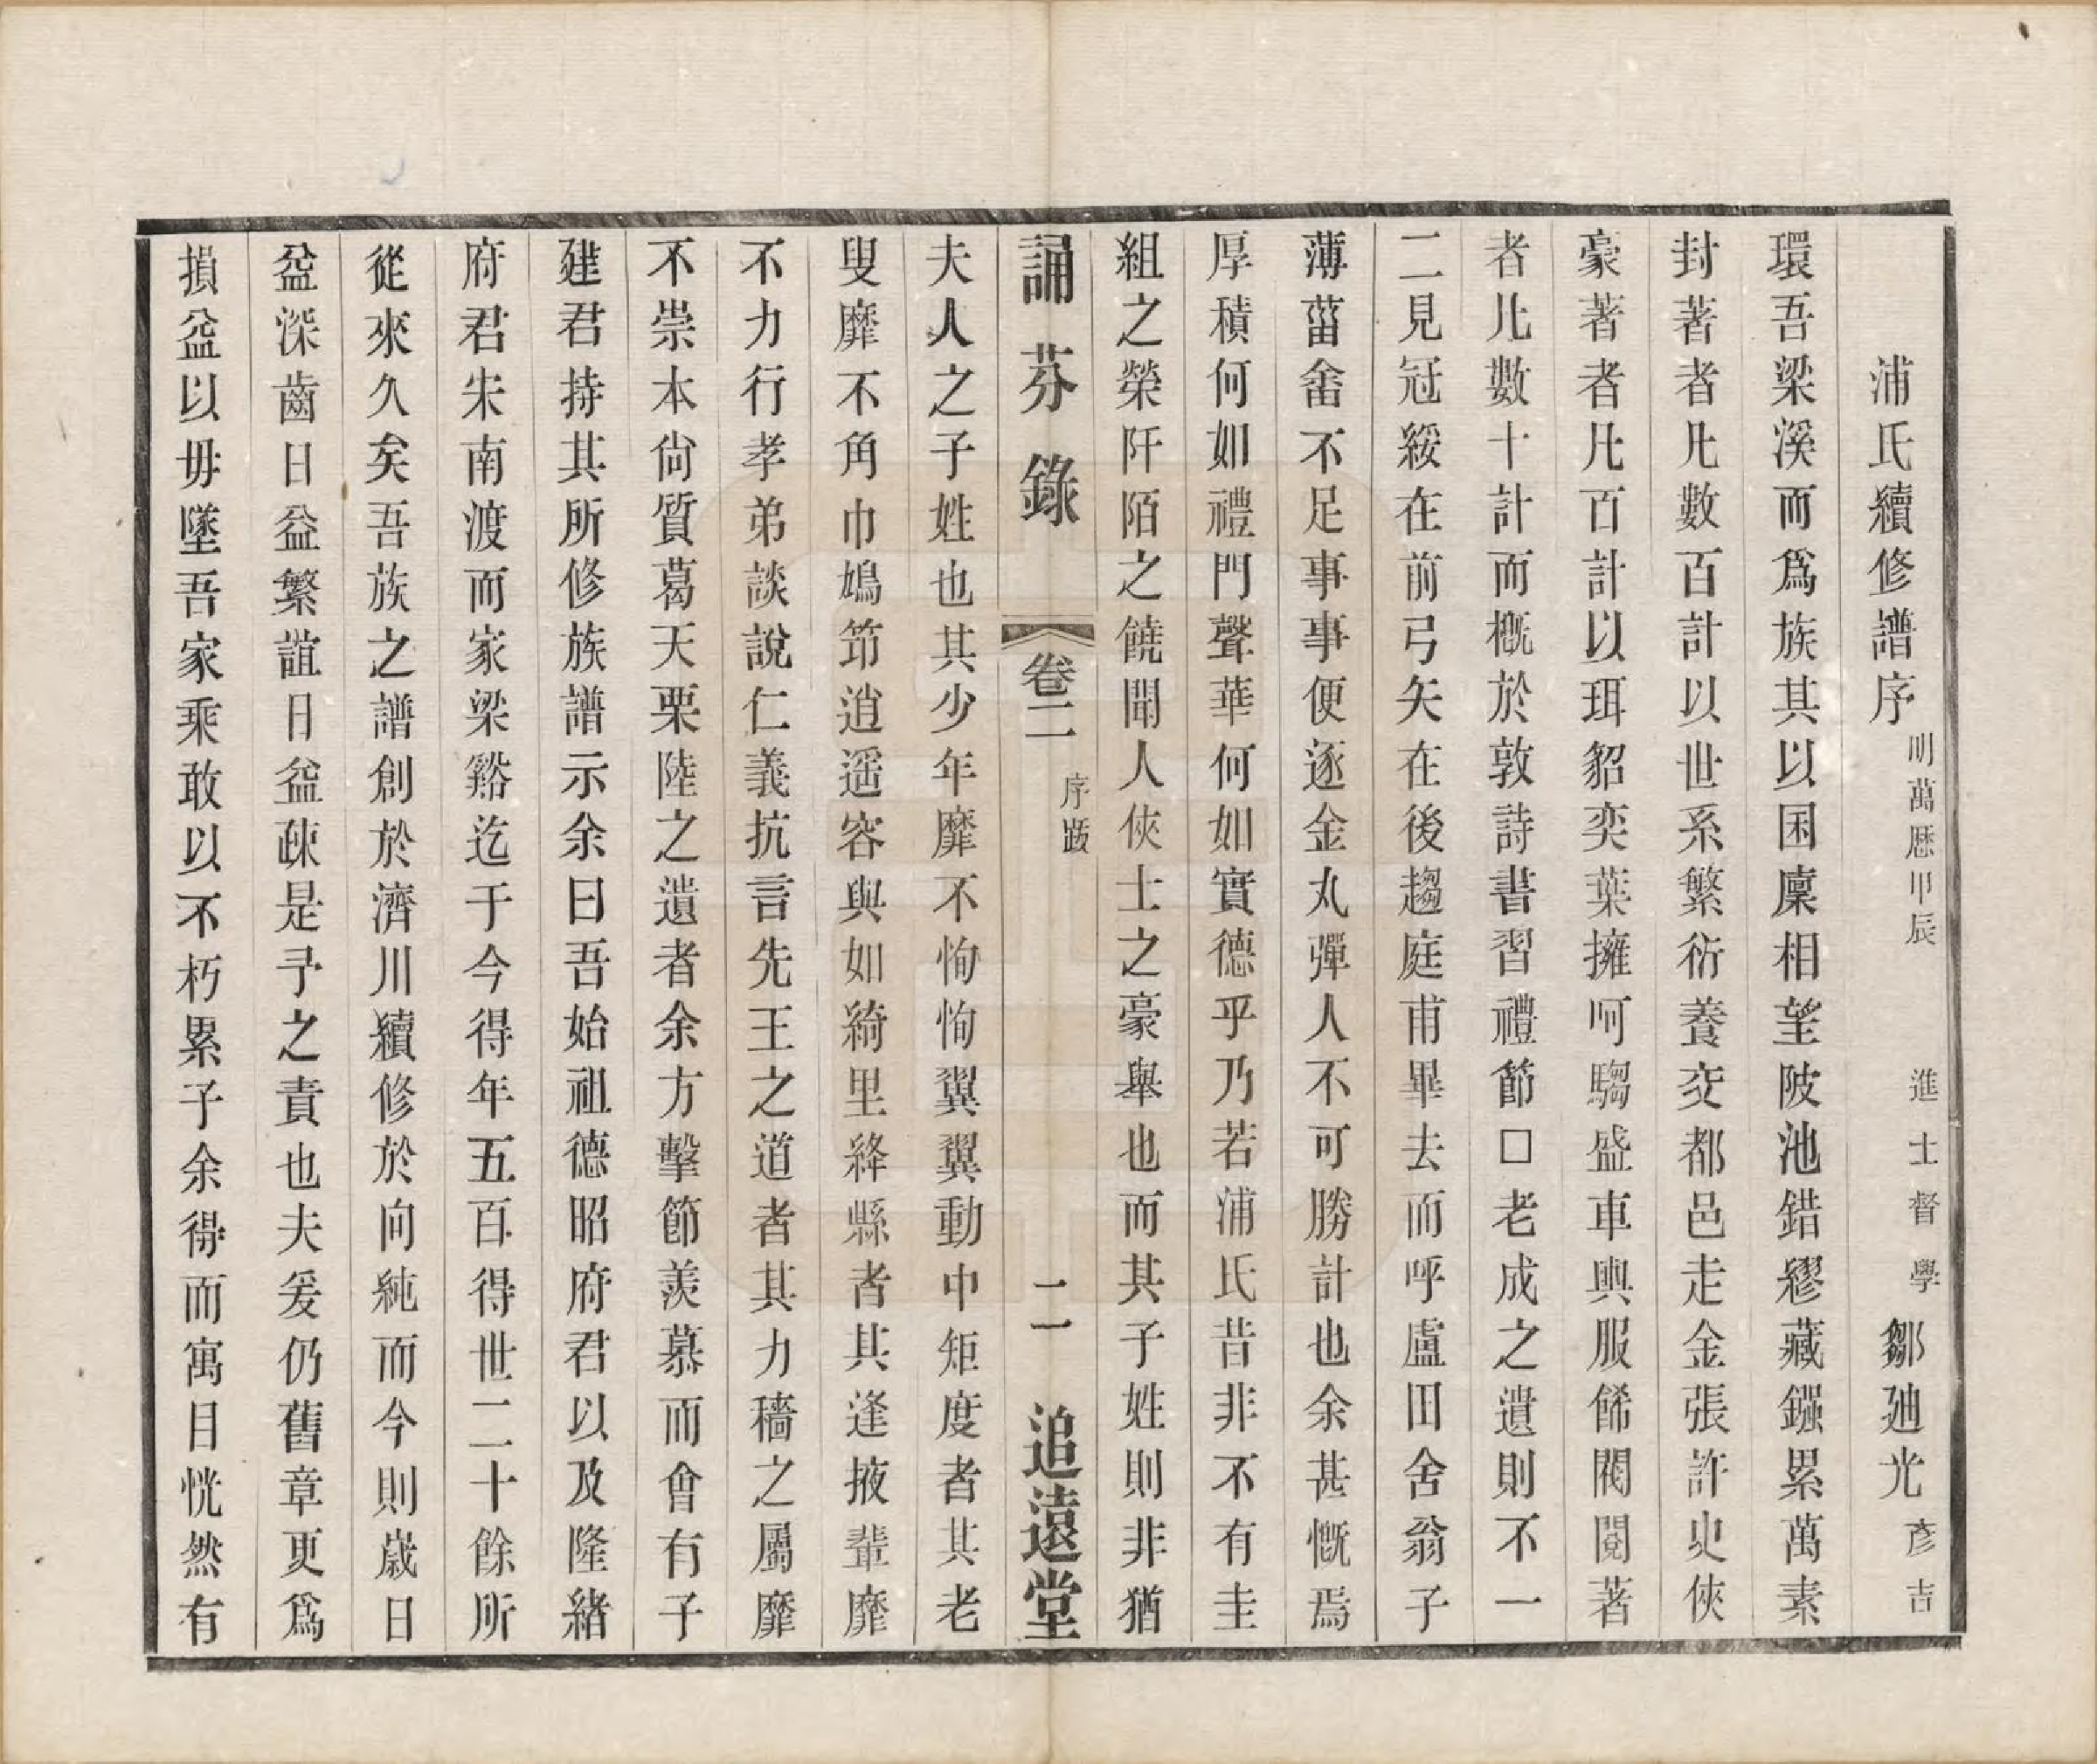 浦氏續修譜序 明萬厯甲辰 進士督學 鄒廸光 彥吉
環吾梁溪而爲族其以囷廩相望陂池錯繆藏鏹累萬素
封著者凡數百計以世系繁衍養交都邑走金張許史俠
豪著者凡百計以珥貂奕葉擁呵騶盛車輿服餙閥閱著
者凡數十計而槪於敦詩書習禮節□老成之遺則不一
二見冠綏在前弓矢在後趨庭甫畢去而呼盧田舍翁子
薄菑畬不足事事便逐金丸彈人不可勝計也余甚慨焉
厚積何如禮門聲華何如實德乎乃若浦氏昔非不有圭
組之榮阡陌之饒聞人俠士之豪舉也而其子姓則非猶
誦芬錄 卷二 序䟦 二 追遠堂
夫人之子姓也其少年靡不恂恂翼翼動中矩度者其老
叟靡不角巾鳩笻逍遥容與如綺里絳縣者其逢掖輩靡
不力行孝弟談說仁義抗言先王之道者其力穡之屬靡
不崇本尙質葛天栗陸之遺者余方擊節羨慕而會有子
建君持其所修族譜示余曰吾始祖德昭府君以及隆緒
府君宋南渡而家梁谿迄于今得年五百得世二十餘所
從來久矣吾族之譜創於濟川續修於向純而今則歲日
益深齒日益繁誼日益疎是予之責也夫爰仍舊章更爲
損益以毋墜吾家乘敢以不朽累子余得而寓目恍然有